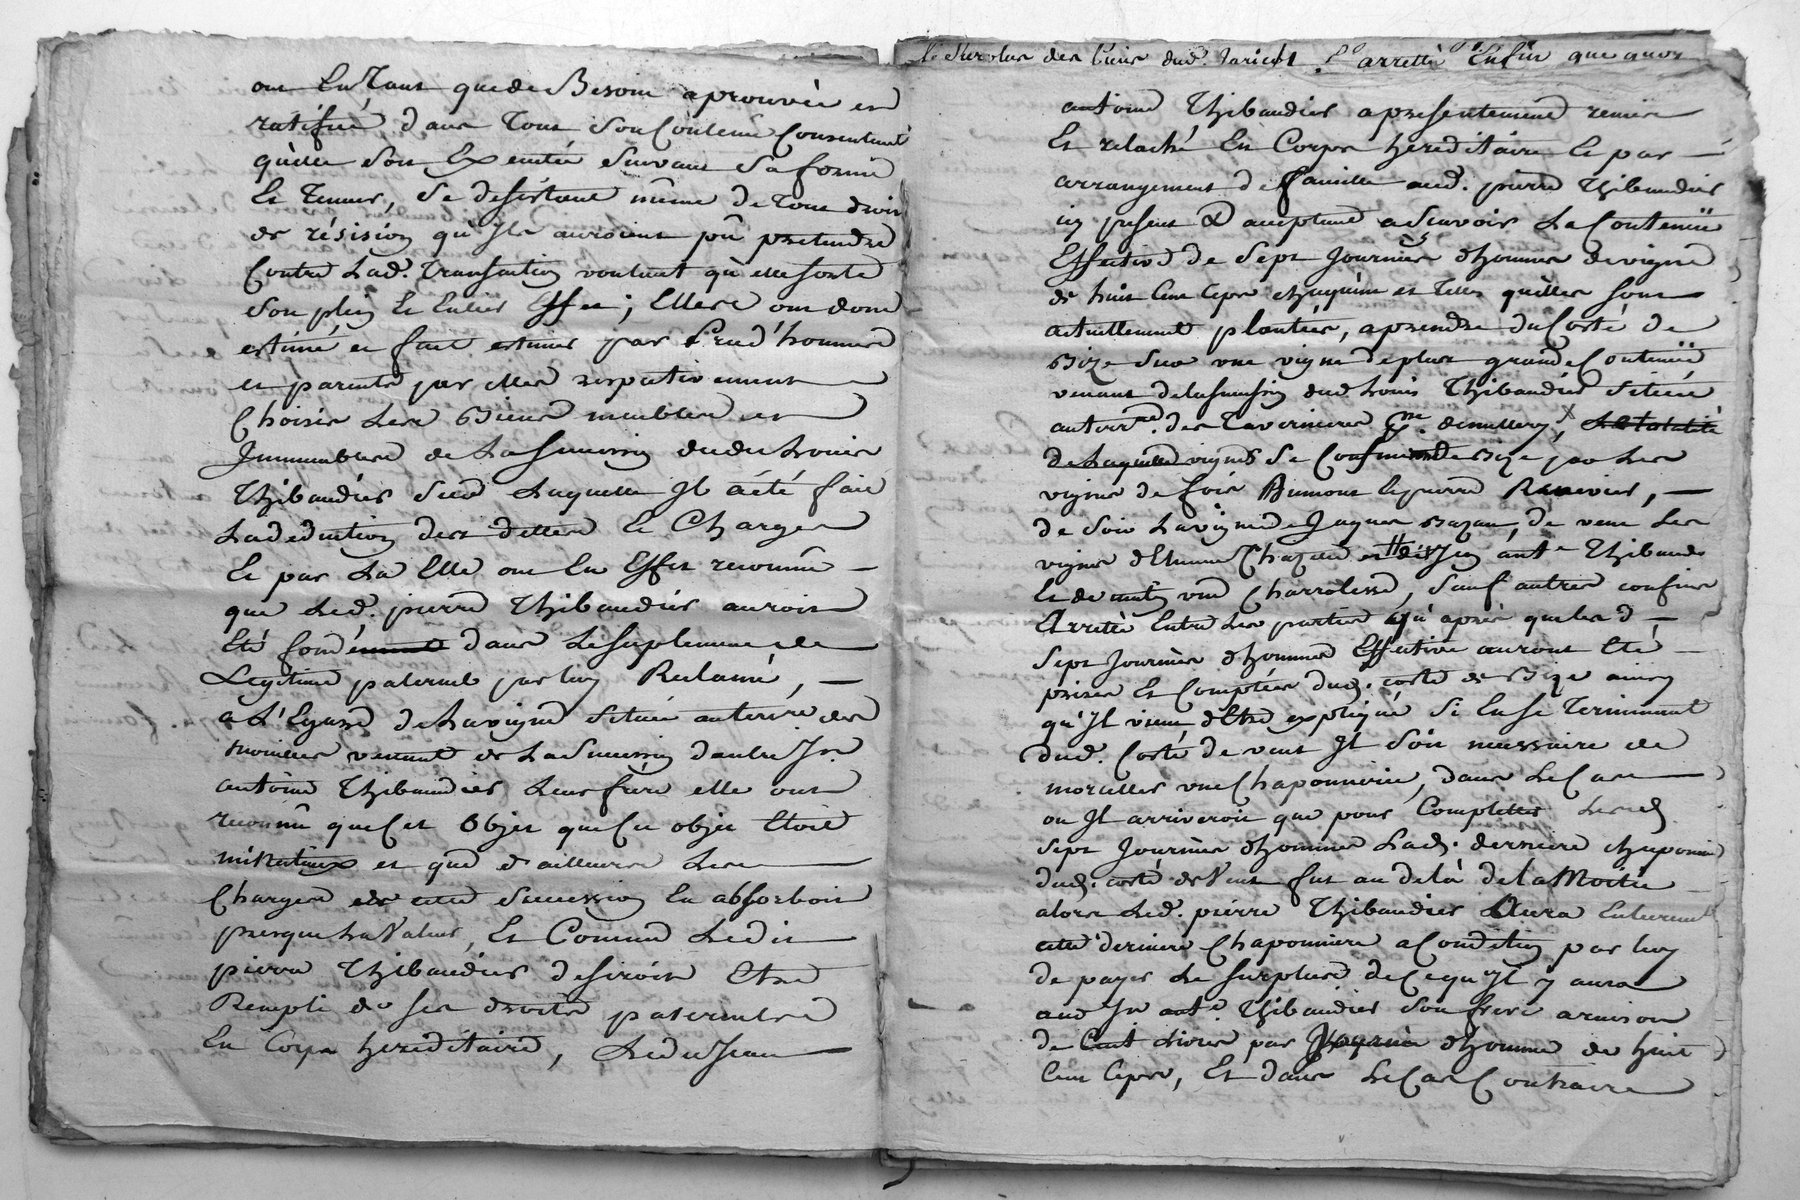 ont En Tant que de Besoin aprouvée et
ratifiée dans Tout Son Contenu Consentent
quelle Soit Executée Suivant Sa forme
Et Teneur, Se desistant même de Tout droit
de résision qu'Ils auroient pû pretendre
Contre Lad. Transaction voulant qu'elle sorte
Son plein Et Entier Effet; Elles ont donc
estimé et fait estimer par Prud'hommes
et parents par elles respectivement
Choisis Les Biens meubles et
Immeubles de La Succession dudit Louis
Thibaudier Sur Laquelle Il a été fait
La deduction des dettes Et Charges
Et par La Elle ont En Effet reconnû
que Led. pierre Thibaudier auroit
Eté fondé dans Le suplement de
Legitime paternel par luy Reclamé,
a L'Egard De La vigne Située au terre des
venant de La Succession d'autre Jn.
antoine Thibaudier Leur frere elle ont
reconnû que Cet Objet que Cet objet Etoit
minutieux et que d'ailleurs Les
Charges de cette Succession En absorboit
presque La Valeur, Et Comme Ledit
pierre Thibaudier desiroit Etre
Rempli de ses droits paternels
En Corps hereditaire, Ledit Jean
Le Surplus des Cuirs dud. Arretté Enfin que
antoine Thibaudier a presentement remis
Et relaché En Corps hereditaire Et par
arrangement de famille aud. pierre Thibaudier
icy present & acceptant a Scavoir La Contenüe
Effective de Sept Journées d'hommes de vigne
de huit Cent Ceps chaquune et Telles quelles sont
actuellement plantées, a prendre du Costé de
Bize Sur une vigne de plus grande Contenüe
venant de la Succession dud. Louis Thibaudier Située
au terr.re des Tavernieres C.ne de millery, X La totalité
de Laquelle vigne Se Confine de Bize par Les
vignes de sieur Bumont Et pierre
de Soir La vigne de Jaques Bazan, de vent Les
vignes d'Etienne Chazelle et dit Jn ant.e Thibaud.
Et de matin une Charroliere, Sauf autres confins
Arretté Entre Les parties qu'après que Lesd
Sept Journées d'hommes Effective auront Eté
prises Et Comptées dud. costé de Bize ainsy
qu'Il vient d'Etre expliqué Si En Se Terminant
dud. Costé de vent Il Soit necessaire de
morceller une Chaponniere, dans Le Cas
ou Il arriveroit que pour Completter Lesd.
Sept Journées d'hommes Lad. derniere chaponnie
dud. costé de Vent fut au dela de la Moitié
alors Led. pierre Thibaudier Aura Entierement
cette derniere Chaponniere a Condition par luy
de payer Le Surplus de Ce qu'Il y aura
aud Jn ant.e Thibaudier Son frere a raison
de Cent Livres par Journée d'homme de huit
Cent Ceps, Et dans Le Cas Contraire